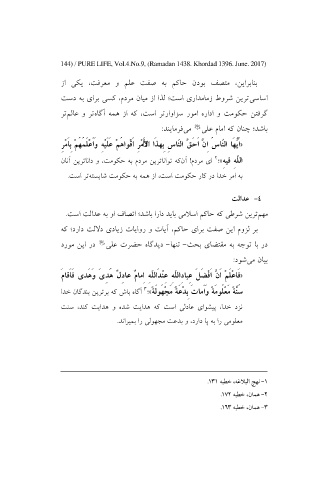 144) / PURE LIFE, Vol.4.No.9, (Ramadan 1438. Khordad 1396. June. 2017)
بنابراین، متصف بودن حاکم به صفت علم و معرفت، یکی از
اساسی‌ترین شروط زمامداری است؛ لذا از میان مردم، کسی برای به دست
گرفتن حکومت و اداره امور سزاوارتر است، که از همه آگاه‌تر و عالم‌تر
باشد؛ چنان که امام علی می‌فرمایند:
«أیُّهَا النّاسُ انَّ احَقَّ النّاسِ بِهذَا الأَمْرِ أقْواهُمْ عَلَیْهِ وَأعْلَمُهُمْ بِأمْرِ
اللَّهِ فیهِ»؛۲ ای مردم! آن‌که تواناترین مردم به حکومت، و داناترین آنان
به امر خدا در کار حکومت است، از همه به حکومت شایسته‌تر است.
۴- عدالت
مهم‌ترین شرطی که حاکم اسلامی باید دارا باشد؛ اتصاف او به عدالت است.
بر لزوم این صفت برای حاکم، آیات و روایات زیادی دلالت دارد؛ که
در با توجه به مقتضای بحث- تنها- دیدگاه حضرت علی در این مورد
بیان می‌شود:
«فَاعْلَمْ انَّ افْضَلَ عِبادِاللَّه عِنْدَاللَّه امامٌ عادِلٌ هُدِیَ وَهَدی فَأقامَ
سُنَّةً مَعْلُومَةً وَأماتَ بِدْعَةً مَجْهُولَةً»؛۳ آگاه باش که برترین بندگان خدا
نزد خدا، پیشوای عادلی است که هدایت شده و هدایت کند، سنت
معلومی را به پا دارد، و بدعت مجهولی را بمیراند.
۱- نهج البلاغه، خطبه ۱۳۱.
۲- همان، خطبه ۱۷۲.
۳- همان، خطبه ۱۶۳.